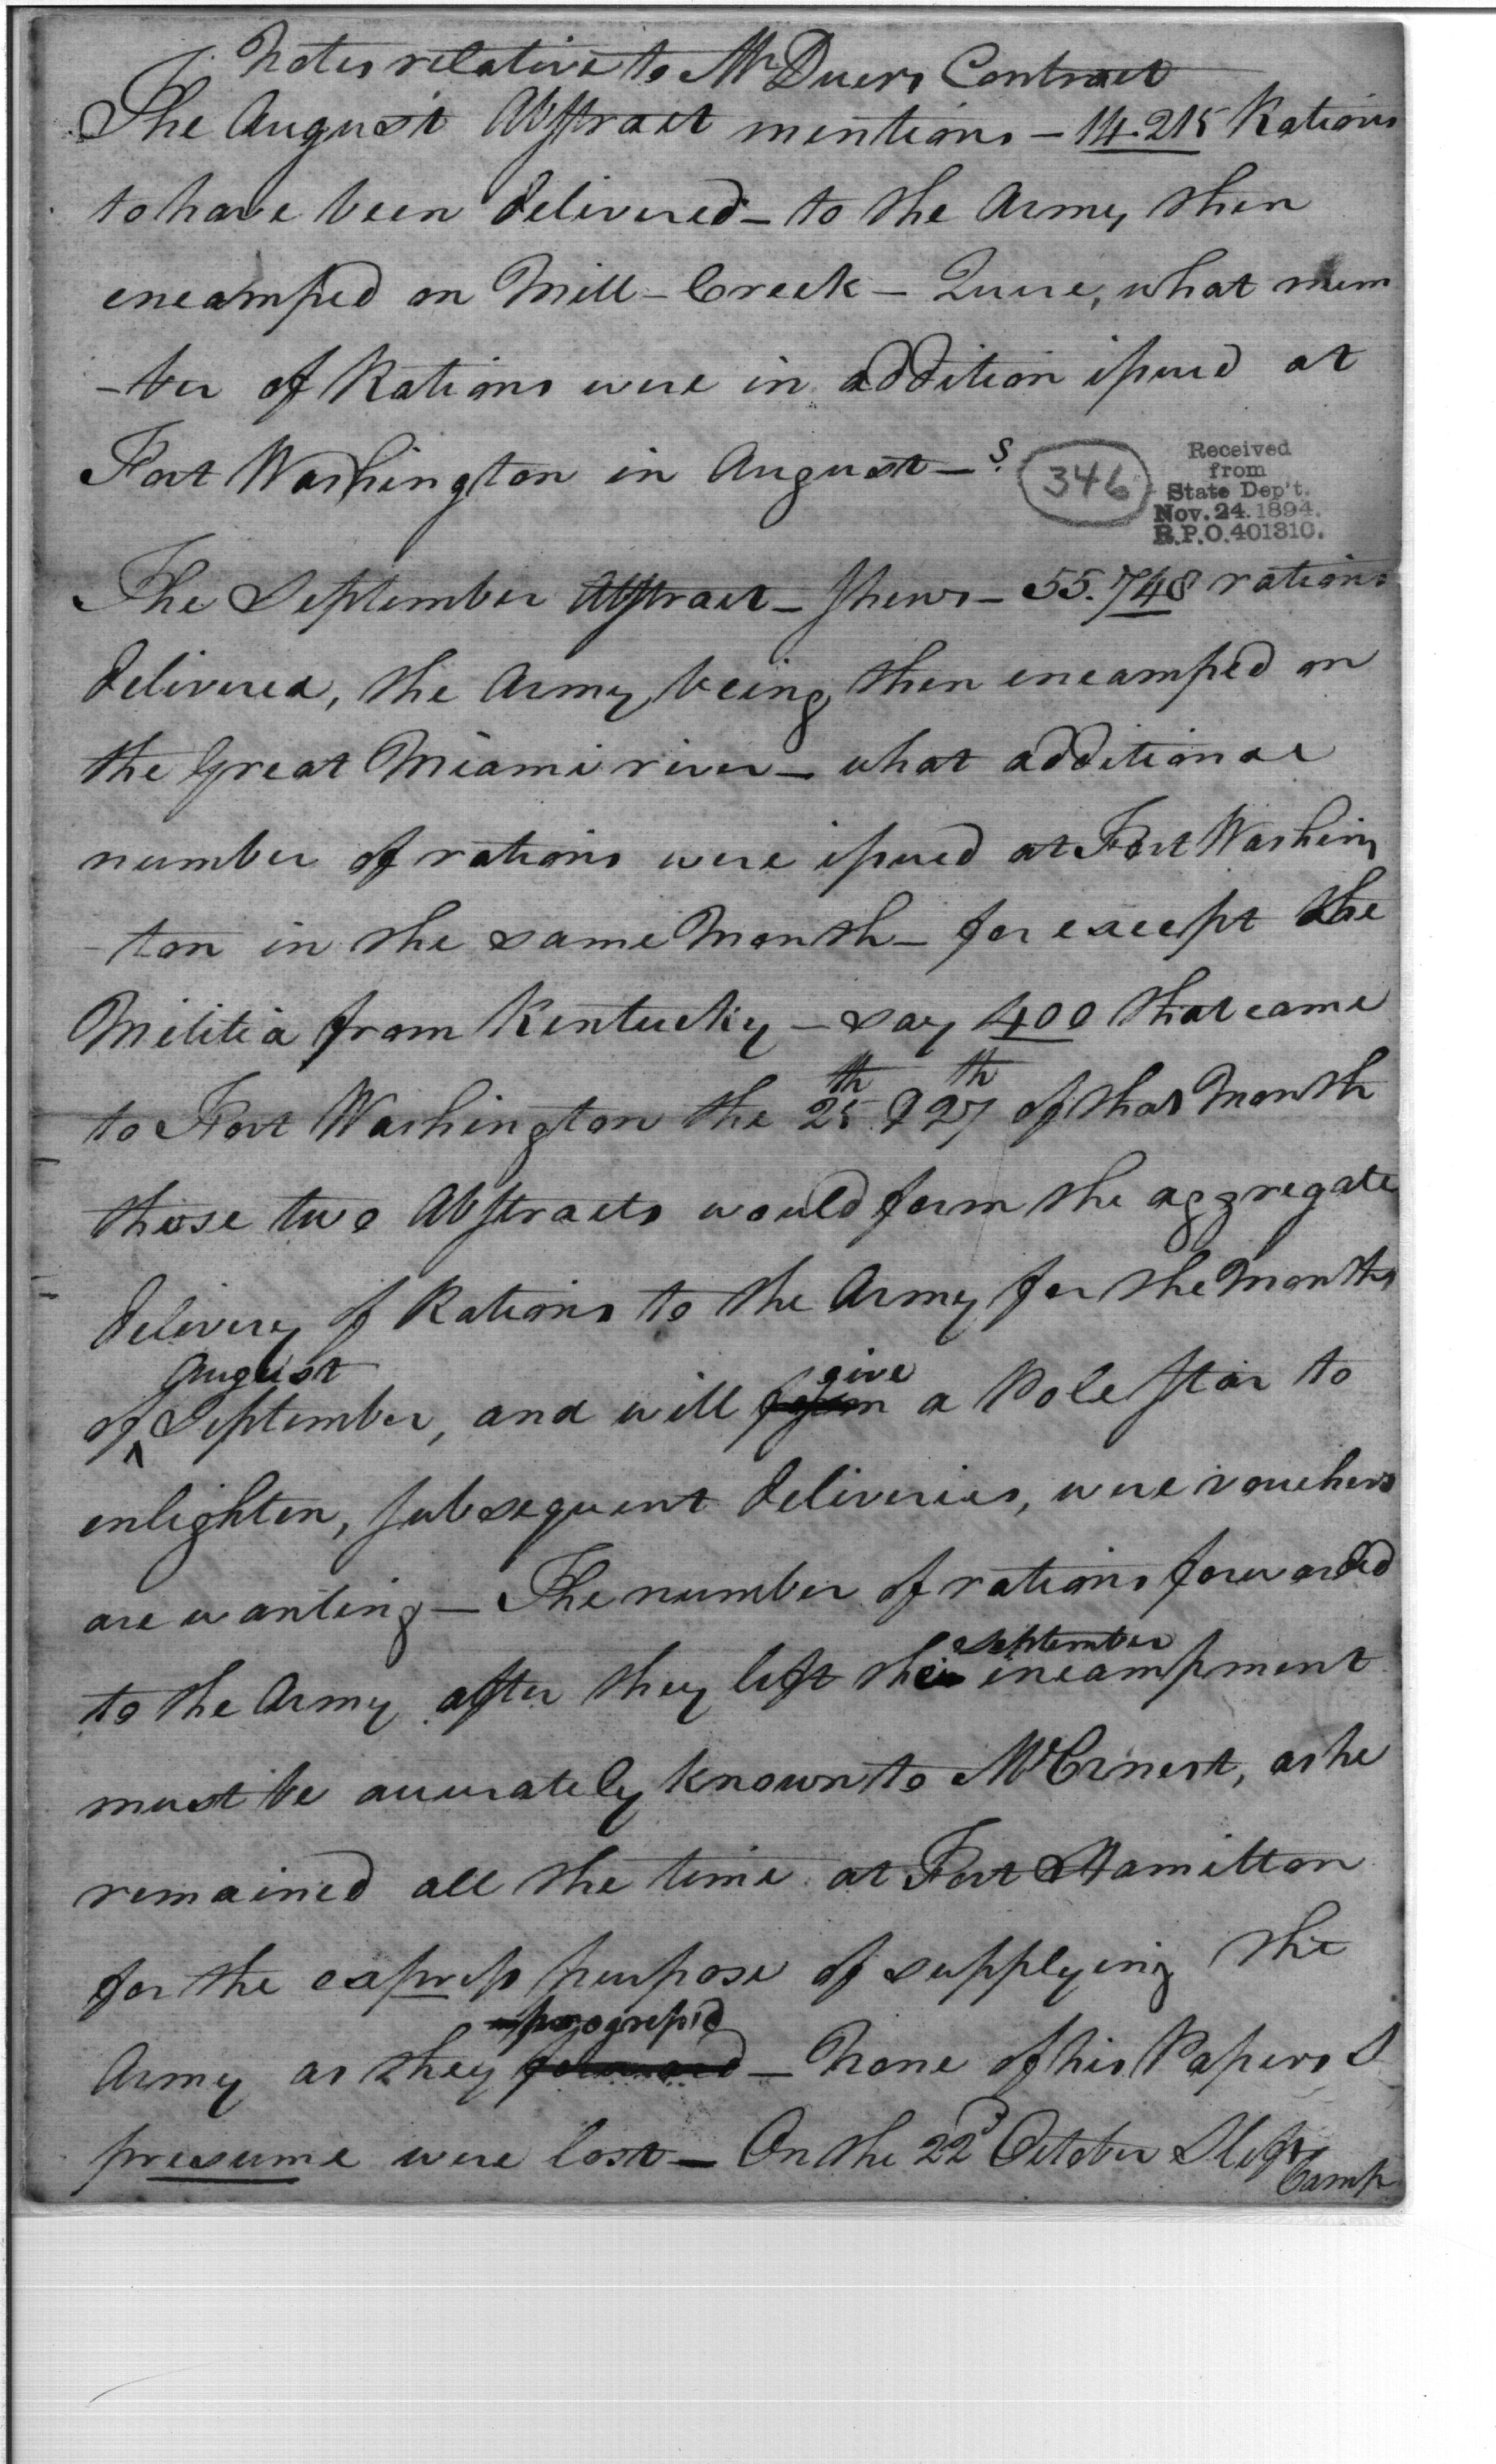 Notes relative to Mr Duers Contract
The August Abstract mentions – 14.215 Rations
to have been delivered – to the Army then
encamped on Mill – Creek – Quere, what num
-ber of Rations were in addition issued at
Fort Washington in August – s.
346
Received
from
State Dep't.
Nov. 24. 1894.
R.P.O. 401310.
The September Abstract – shews – 55.748 rations
delivered, the Army being then encamped on
the Great Miami river – what additional
number of rations were issued at Fort Washing
-ton in the same Month – for except the
Militia from Kentucky – say 400 that came
to Fort Washington the 25th & 27th of that Month
those two Abstracts would form the aggregate
delivery of Rations to the Army for the Months
August
of September, and will form give a Pole star to
enlighten, subsequent deliveries, were vouchers
are wanting – The number of rations forwarded
september
to the Army after they left their incampment
must be accurately known to Mr Ernest, as he
remained all the time at Fort Hamilton
for the express purpose of supplying the
progress'd
Army as they forward – None of his Papers I
presume were lost – On the 22d October I left
Camp